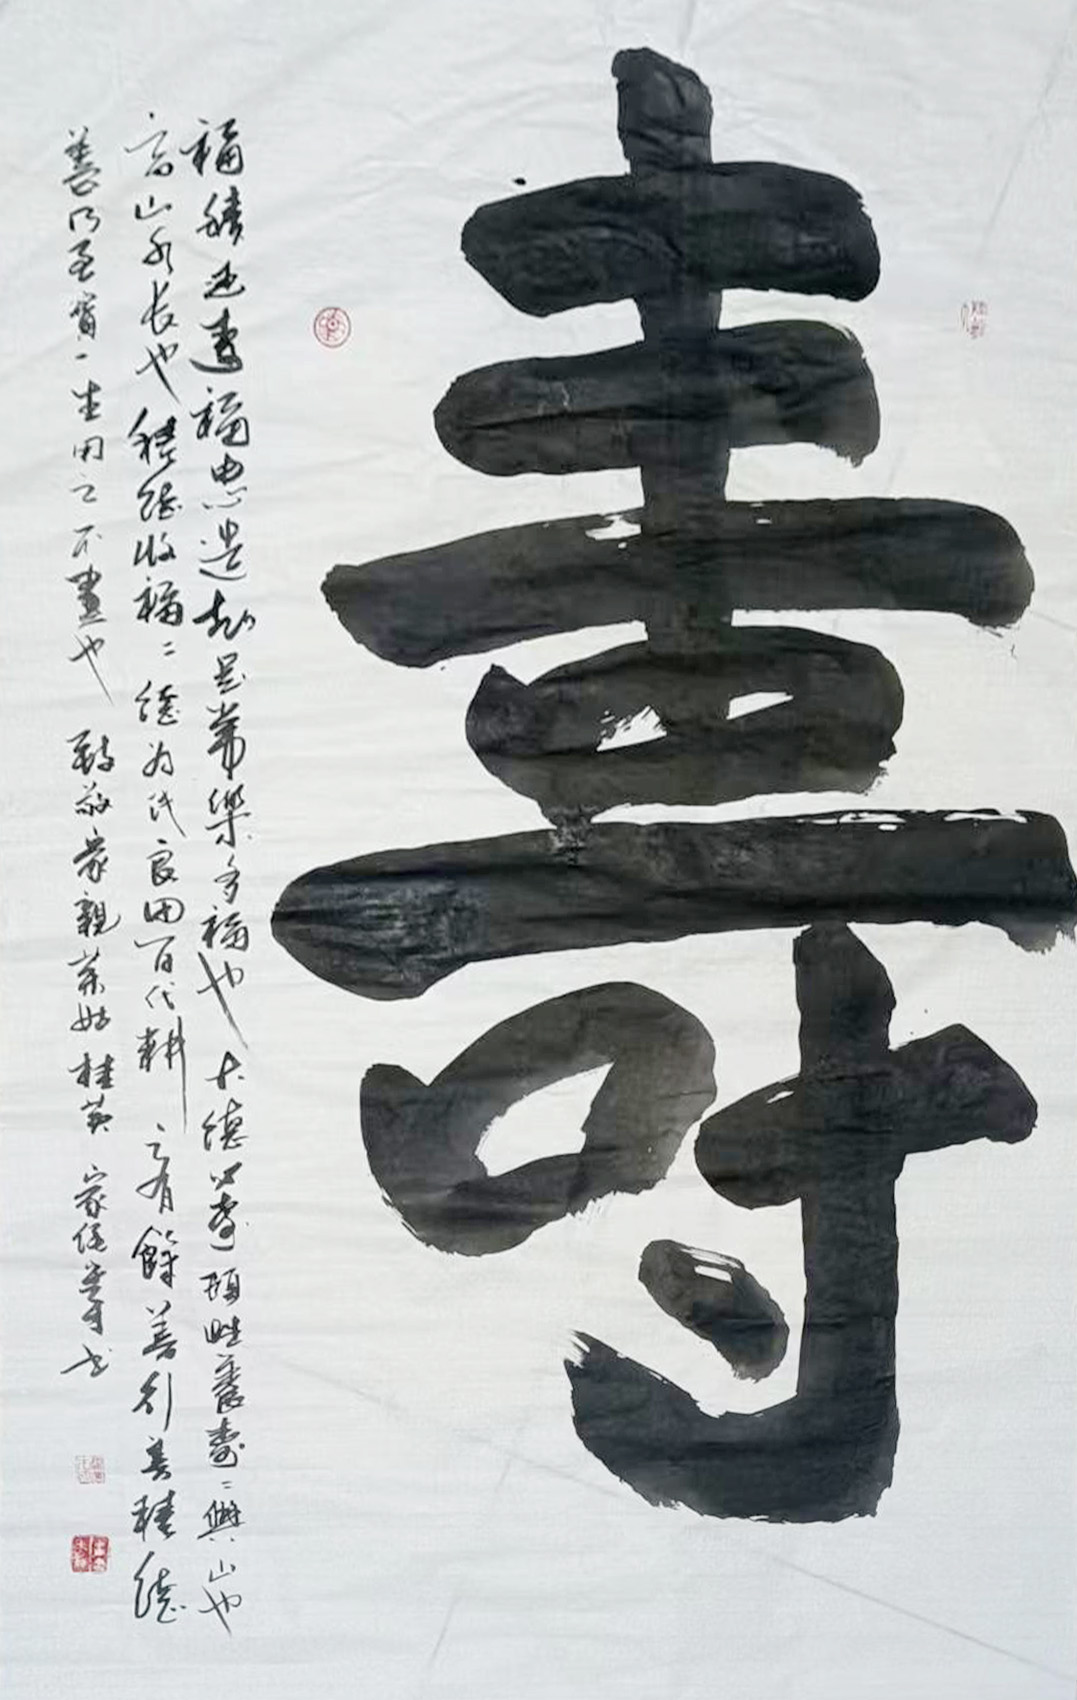 壽
福積也壽福惠還起是常樂多福也 大德必壽頤性養壽二與山也
高山水長也積德收福二德為氏良田百代耕 之有餘善行善積德
善乃至寶一生用之不盡也 致敬家親葉姑桂英 家侄書